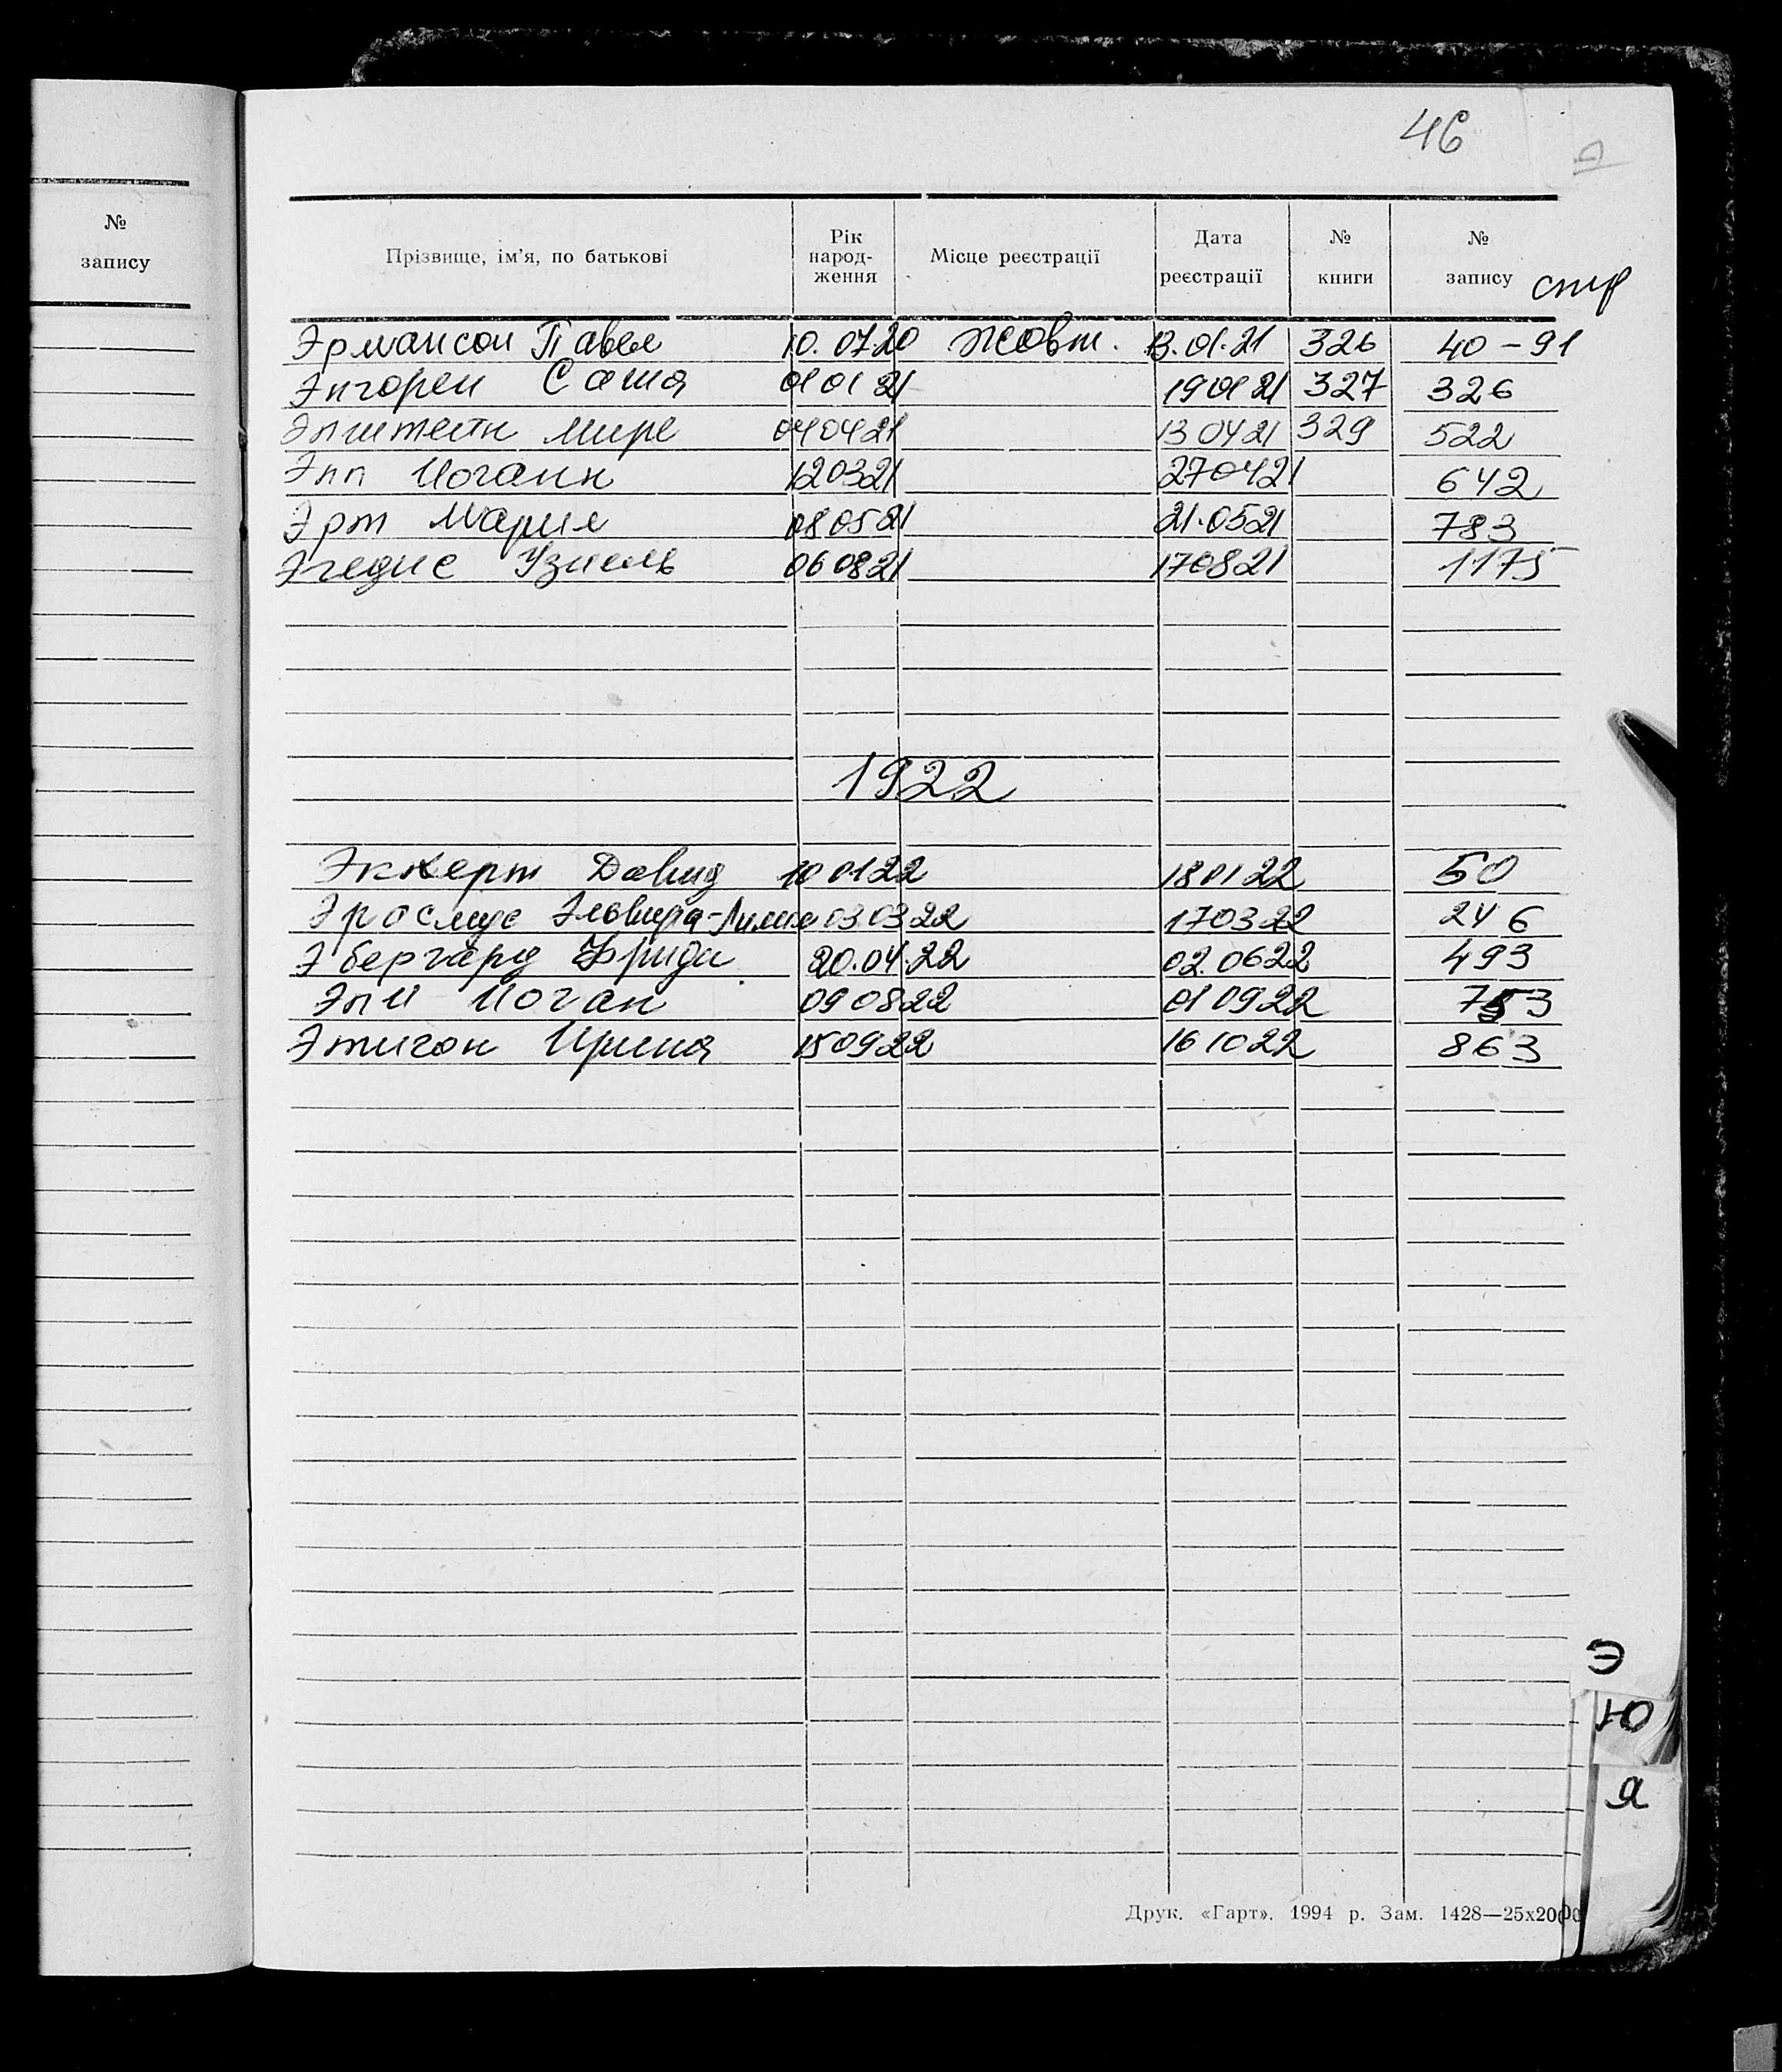 46
№
запису
Прізвище, ім'я, по батькові
Рік
народ-
ження
Місце реєстрації
Дата
реєстрації
№
книги
№
запису
стр
Эрмансон Павел 10.07.20 Жовт. 13.01.21 326 40-91
Энгорен Саша 010121 190121 327 326
Эпштейн Мире 040421 130421 329 522
Эпп Иоганн 120321 270421 642
Эрт Мария 080521 21.0521 783
Эгедис Узиель 060821 170821 1175
1922
Эккерт Давид 100122 180122 50
Эрасмус Эльвира- 030322 170322 246
Эбергард Фрида 20.04.22 02.0622 493
Эпп Иоган 090822 010922 753
Этигон Ирина 150922 161022 863
Э
Ю
Я
Друк. «Гарт». 1994 р. Зам. 1428—25х2000